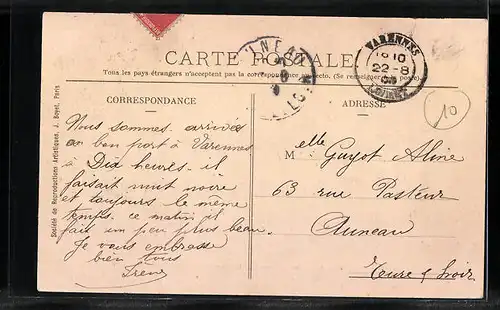 CARTE POSTALE
Tous les pays étrangers n'acceptent pas la correspondance au recto. (Se renseigner à la poste)
VARENNES
18 10
22-8
10
CORRESPONDANCE
ADRESSE
Société de Reproductions Artistiques, J. Boyer, Paris
Nous sommes arrivés
au bon port à Varennes
à Dix heures. il
faisait nuit noire
et toujours le même
temps. ce matin il
fait un peu plus beau.
Je vous embrasse
bien tous
Irène
Melle Guyot Aline
63 rue Pasteur
Auneau
Eure & Loir